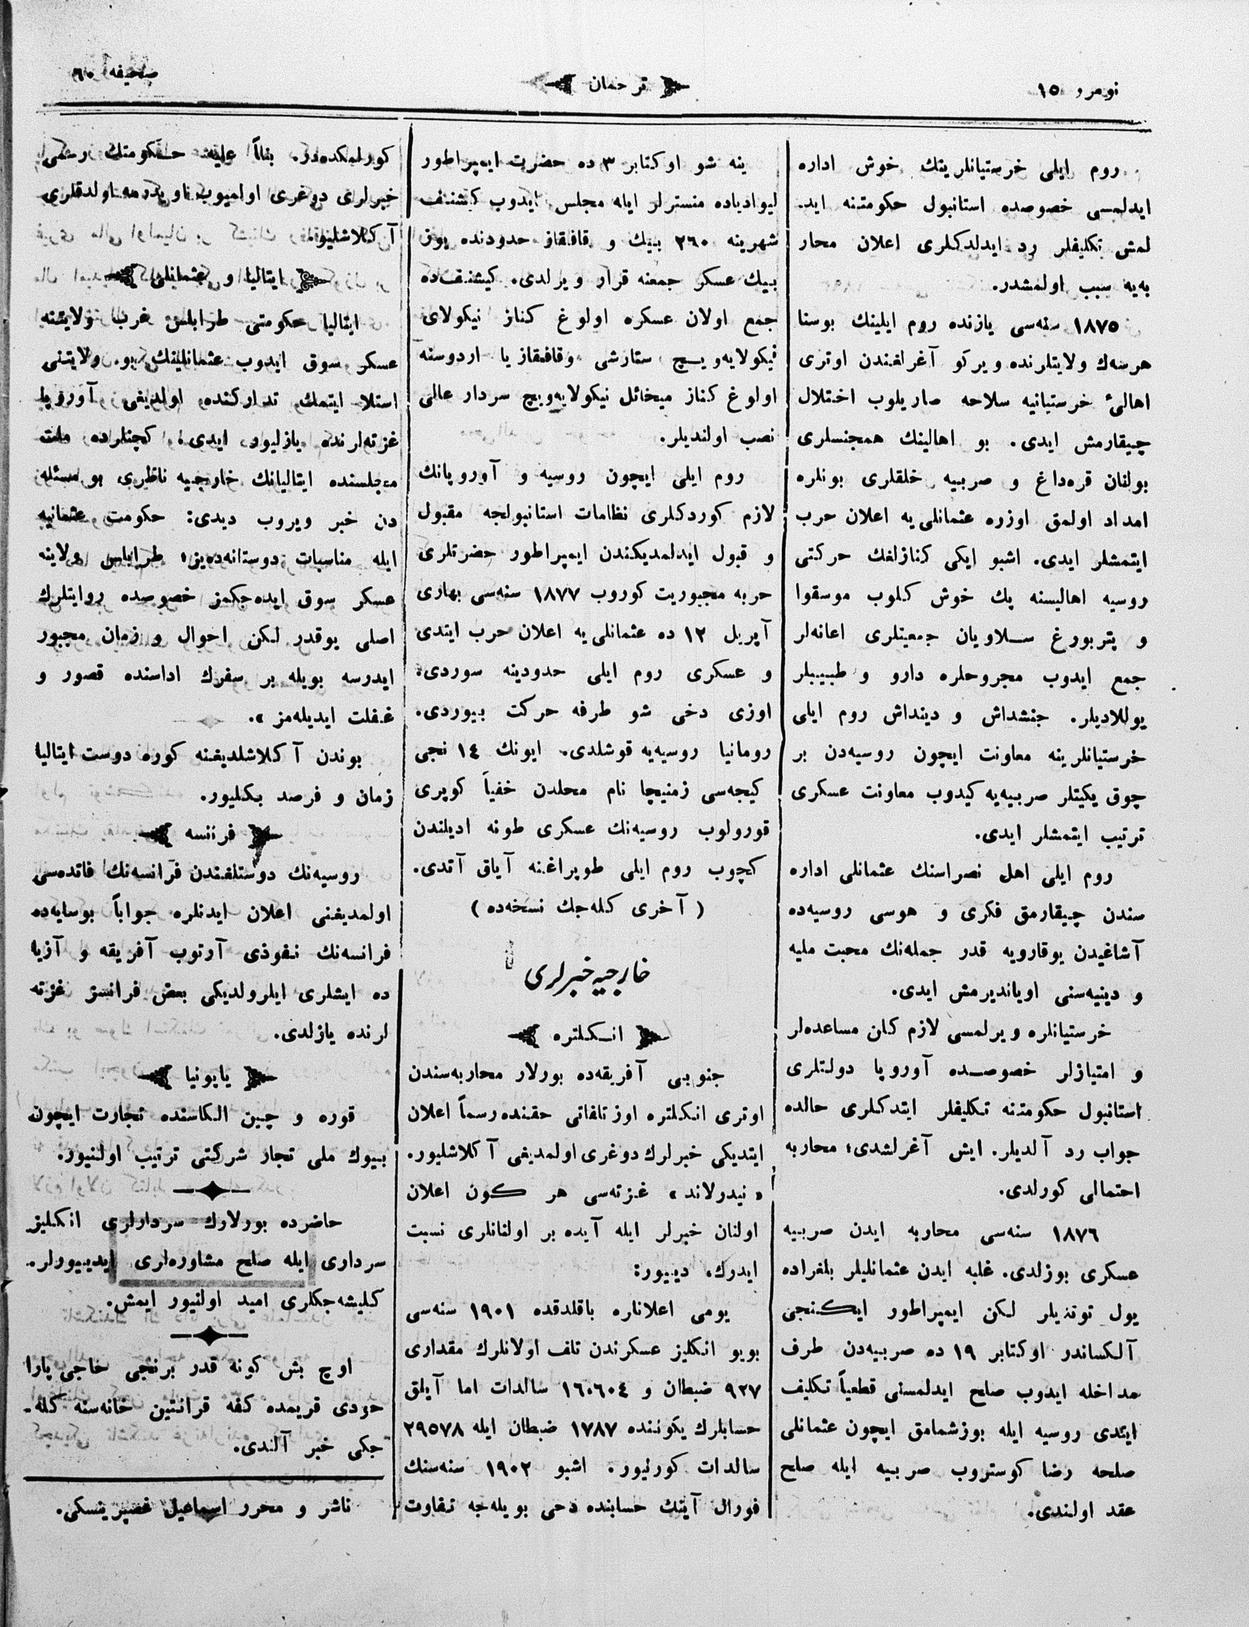 نومرو ١٥
ترجمان
صحیفه ٦٠
روم ایلی خرستیانلرینك خوش اداره
ایدلمسی خصوصده استانبول حکومتنه اید‌ـ
لمش تکلیفلر رد ایدلدکلری اعلان محار
به‌یه سبب اولمشدر.
١٨٧٥ سنه‌سی یازنده روم ایلینك بوسنا
هرسه‌ك ولایتلرنده ویرکو آغرلغندن اوتری
اهالیٔ خرستیانیه سلاحه صاریلوب اختلال
چیقارمش ایدی. بو اهالینك همجنسلری
بولنان قره‌داغ و صربیه خلقلری بونلره
امداد اولمق اوزره عثمانلی‌یه اعلان حرب
ایتمشلر ایدی. اشبو ایکی کنازلغك حرکتی
روسیه اهالیسنه پك خوش کلوب موسقوا
و پتربورغ سلاویان جمعیتلری اعانه‌لر
جمع ایدوب مجروحلره دارو و طبیبلر
یوللادیلر. جنشداش و دینداش روم ایلی
خرستیانلرینه معاونت ایچون روسیه‌دن بر
چوق یکیتلر صربیه‌یه کیدوب معاونت عسکری
ترتیب ایتمشلر ایدی.
روم ایلی اهل نصراسنك عثمانلی اداره
سندن چیقارمق فکری و هوسی روسیه‌ده
آشاغیدن یوقارویه قدر جمله‌نك محبت ملیه
و دینیه‌سنی اویاندیرمش ایدی.
خرستیانلره ویرلمسی لازم کلن مساعده‌لر
و امتیازلر خصوصده آوروپا دولتلری
استانبول حکومتنه تکلیفلر ایتدکلری حالده
جواب رد آلدیلر. ایش آغرلشدی؛ محاربه
احتمالی کورلدی.
١٨٧٦ سنه‌سی محاربه ایدن صربیه
عسکری بوزلدی. غلبه ایدن عثمانلیلر بلغراده
یول توتدیلر لکن ایمپراطور ایکنجی
آلکساندر اوکتابر ١٩ ده صربیه‌دن طرف
مداخله ایدوب صلح ایدلمسنی قطعیاً تکلیف
ایتدی روسیه ایله بوزشمامق ایچون عثمانلی
صلحه رضا کوستروب صربیه ایله صلح
عقد اولندی.
ینه شو اوکتابر ٣ ده حضرت ایمپراطور
لیوادیاده منسترلر ایله مجلس ایدوب کشنف
شهرینه ٢٦٠ بیك و قافقاز حدودنده یوز
بیك عسکر جمعنه قرار ویرلدی. کیشنف‌ده
جمع اولان عسکره اولوغ کناز نیکولای
نیکولایه‌ویچ ستارشی وقافقازیا اردوسنه
اولوغ کناز میخائل نیکولایه‌ویچ سردار عالی
نصب اولندیلر.
روم ایلی ایچون روسیه و آوروپانك
لازم کوردکلری نظامات استانبولجه مقبول
و قبول ایدلمدیکندن ایمپراطور حضرتلری
حربه مجبوریت کوروب ١٨٧٧ سنه‌سی بهاری
آپریل ١٢ ده عثمانلی‌یه اعلان حرب ایتدی
و عسکری روم ایلی حدودینه سوردی؛
اوزی دخی شو طرفه حرکت بیوردی.
رومانیا روسیه‌یه قوشلدی. ایونك ١٤ نجی
کیجه‌سی زمنیچا نام محلدن خفیاً کوپری
قورولوب روسیه‌نك عسکری طونه ادیلندن
کچوب روم ایلی طوپراغنه آیاق آتدی.
( آخری کله‌جك نسخه‌ده )
خارجیه خبرلری
انکلتره
جنوبی آفریقه‌ده بورلار محاربه‌سندن
اوتری انکلتره اوز تلفاتی حقنده رسماً اعلان
ایتدیکی خبرلرك دوغری اولمدیغی آکلاشلیور.
« نیدرلاند » غزته‌سی هر کون اعلان
اولنان خبرلر ایله آیده بر اولنانلری نسبت
ایدرك. دیییور:
یومی اعلاناره باقلدقده ١٩٠١ سنه‌سی
بویو انکلیز عسکرندن تلف اولانلرك مقداری
٩٢٧ ضبطان و ١٦٠٦٠٤ سالدات اما آیلق
حسابلرك یکوننده ١٧٨٧ ضبطان ایله ٢٩٥٧٨
سالدات کورنیور. اشبو ١٩٠٢ سنه‌سنك
فورال آینك حسابنده دخی بویله‌جه تفاوت
کورلمکده‌در. بناً علیه حکومتك رسمی
خبرلری دوغری اولمیوب اویدرمه اولدقلری
آکلاشلیور.
ایتالیا و عثمانلی
ایتالیا حکومتی طرابلس غرب ولایتنه
عسکر سوق ایدوب عثمانلینك بو ولایتنی
استلا ایتمك تدارکنده اولدیغی آوروپا
غزته‌لرنده یازلیور ایدی. کچنلرده ملت
مجلسنده ایتالیانك خارجیه ناظری بو مسئله
دن خبر ویروب دیدی: حکومت عثمانیه
ایله مناسبات دوستانه‌ده‌یز؛ طرابلس ولاینه
عسکر سوق ایده‌جکمز خصوصده روایتلرك
اصلی یوقدر لکن احوال و زمان مجبور
ایدرسه بویله بر سفرك اداسنده قصور و
غفلت ایدیله‌مز ».
بوندن آکلاشلدیغنه کوره دوست ایتالیا
زمان و فرصد بکلیور.
فرانسه
روسیه‌نك دوستلغندن فرانسه‌نك فائده‌سی
اولمدیغنی اعلان ایدنلره جواباً بوسایه‌ده
فرانسه‌نك نفوذی آرتوب آفریقه و آزیا
ده ایشلری ایلرولدیکی بعض فرانسز غزته
لرنده یازلدی.
یاپونیا
قوره و چین الکاسنده تجارت ایچون
بیوك ملی تجار شرکتی ترتیب اولنیور.
حاضرده بورلارك سردارلری انکلیز
سرداری ایله صلح مشاوره‌لری ایدییورلر.
کلیشه‌جکلری امید اولنیور ایمش.
اوچ بش کونه قدر برنجی حاجی پارا
خودی قریمده کفه قرانتین خانه‌سنه کله‌ـ
جکی خبر آلندی.
ناشر و محرر اسماعیل غصپرینسکی.